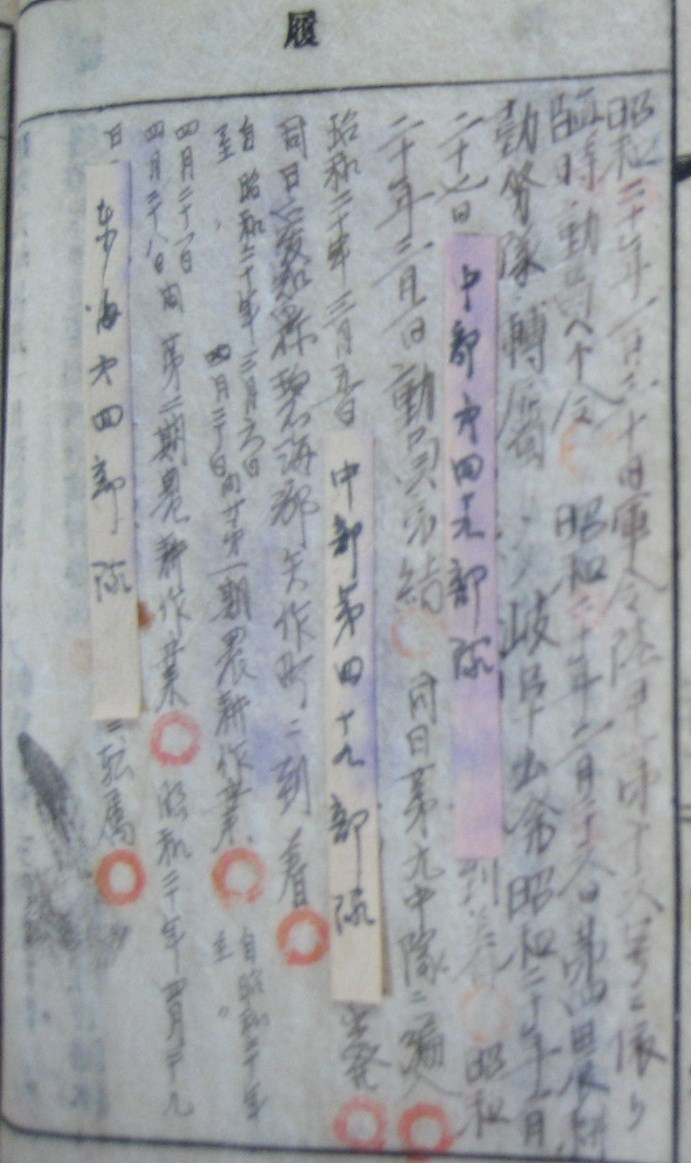 履
昭和二十年一月三十日軍令陸甲第十八号ニ依リ
臨時動員下令 昭和二十年二月二十八日第四農耕
勤務隊ニ轉属 岐阜出発昭和二十年二月
二十七日 中部第四十九部隊 到着 昭和
二十年三月一日動員完結 同日第九中隊ニ編入
昭和二十年三月五日 中部第四十九部隊 出発
同日愛知縣碧海郡矢作町ニ到着
自昭和二十年三月六日
至〃四月二十日間第一期農耕作業 自昭和二十年
至〃
四月二十一日
四月二十八日間第二期農耕作業 昭和二十年四月二十九
日 東海第四部隊 ニ転属